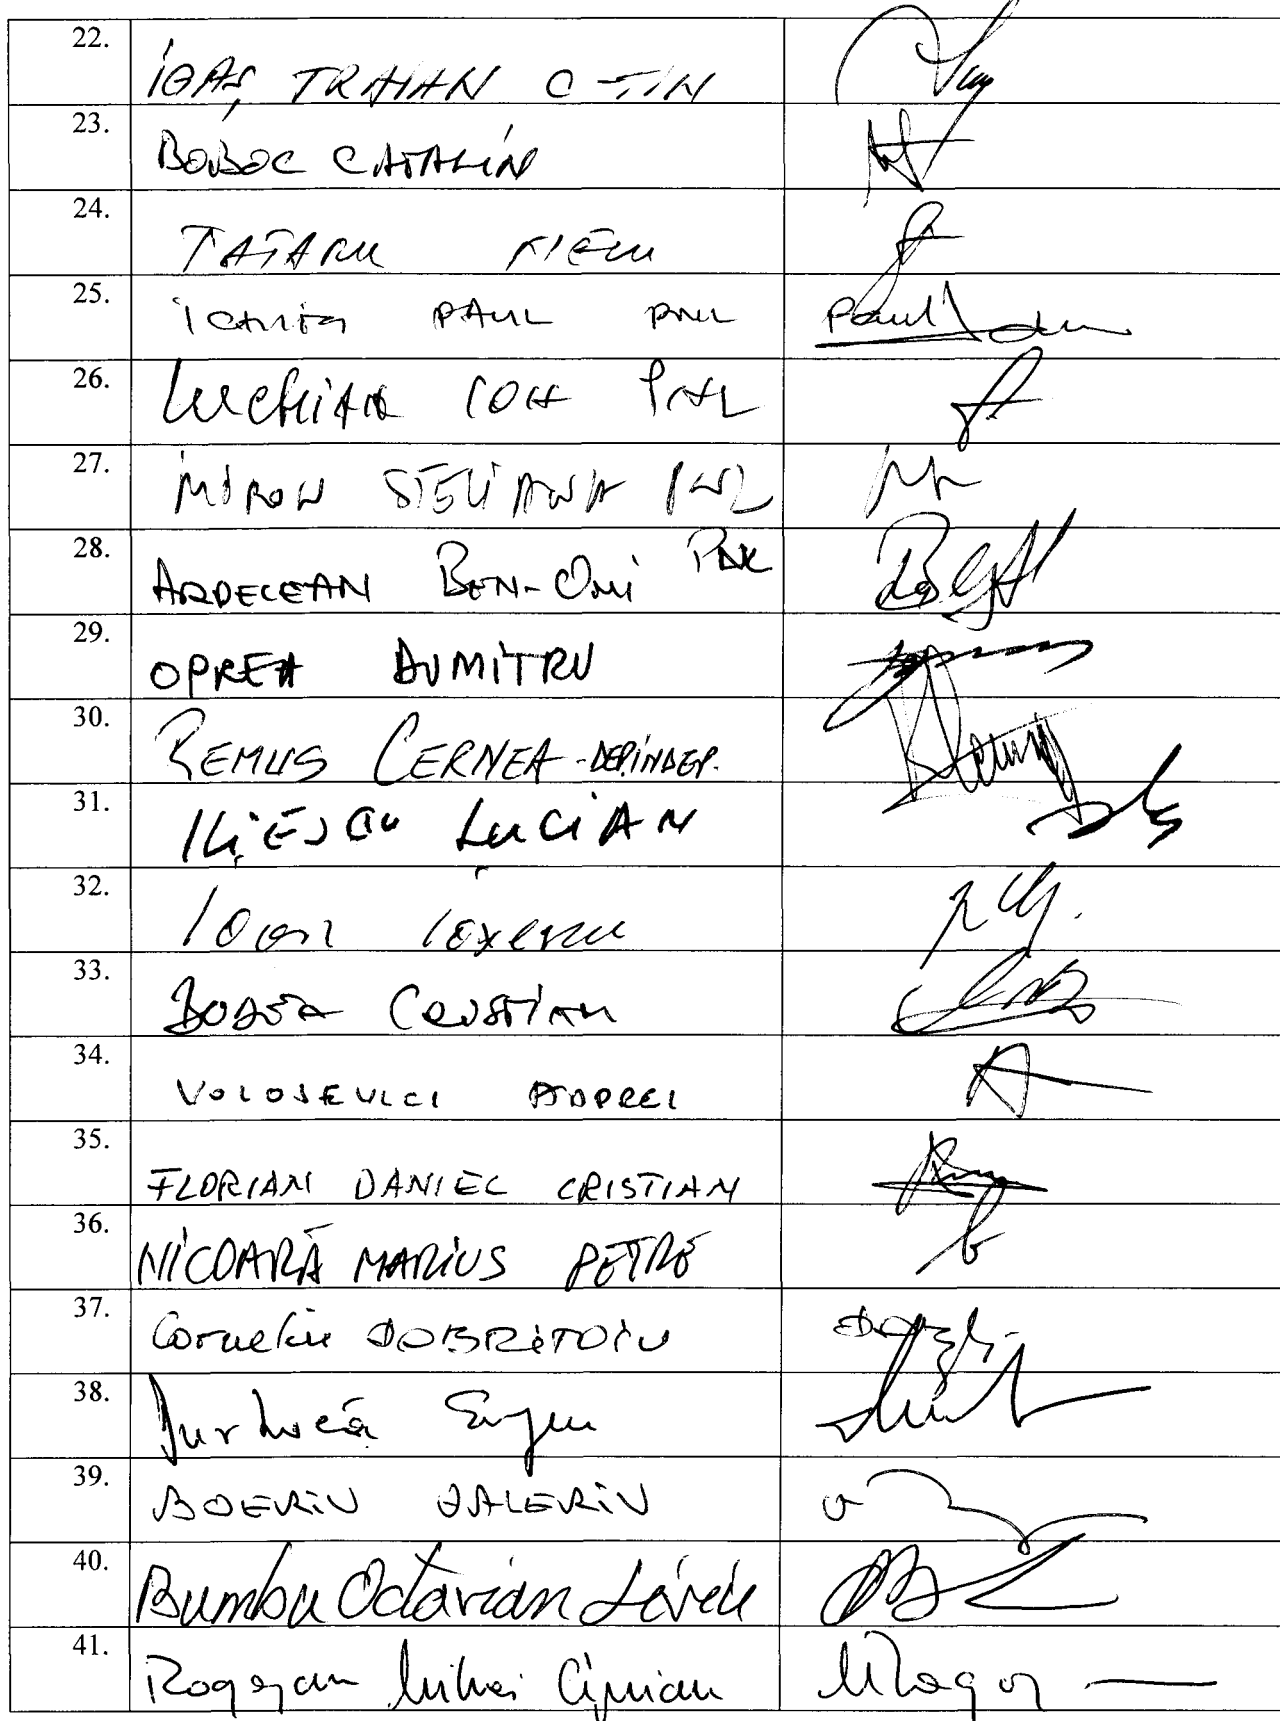 22. IGAȘ TRAIAN C-TIN
23. BOBOC CATALIN
24. TATARU NELU
25. PAUL PNL Paul
26. Luchian ION PNL
27. MIRON STELIANA PNL
28. ARDELEAN BEN-Oni PNL
29. OPREA DUMITRU
30. REMUS CERNEA-DEP.INDEP.
31. ILIESCU LUCIAN
32. Ioan
33. BODEA CRISTIAN
34. VOLOSEVICI ANDREI
35. FLORIAN DANIEL CRISTIAN
36. NICOARĂ MARIUS PETRE
37. Corneliu DOBRIȚOIU
38. Eugen
39. BOERIU VALERIU
40. Bumbu Octavian Liviu
41. Rogojan Mihai Ciprian